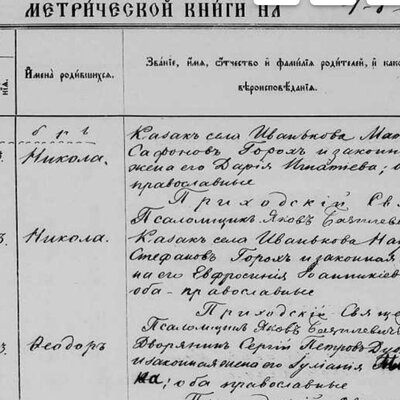 МЕТРИЧЕСКОЙ КНИГИ НА
Имена родившихся.
Званіе, имя, отчество и фамилія родителей, и како
вѣроисповѣданія.
нія.
Казакъ села Иванькова
Николай.
Сафоновъ Горохъ и законн
жена его Дарія Игнатіева;
православные
Приходскій Св
Псаломщикъ Яковъ
Никола.
Казакъ села Иванькова
Стефановъ Горохъ и законная
на его Евфросинія Іоанникіе
оба православные
Приходскій Свяще
Псаломщикъ Яковъ
Ѳеодоръ
Дворянинъ Сергій Петровъ
и законная жена его
на; оба православные